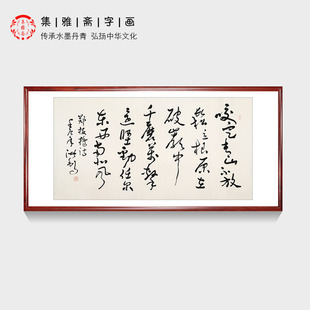 集雅斋字画
传承水墨丹青 弘扬中华文化
咬定青山不放
鬆立根原在
破岩中
千磨萬擊
还坚劲任尔
东西南北风
郑板桥诗